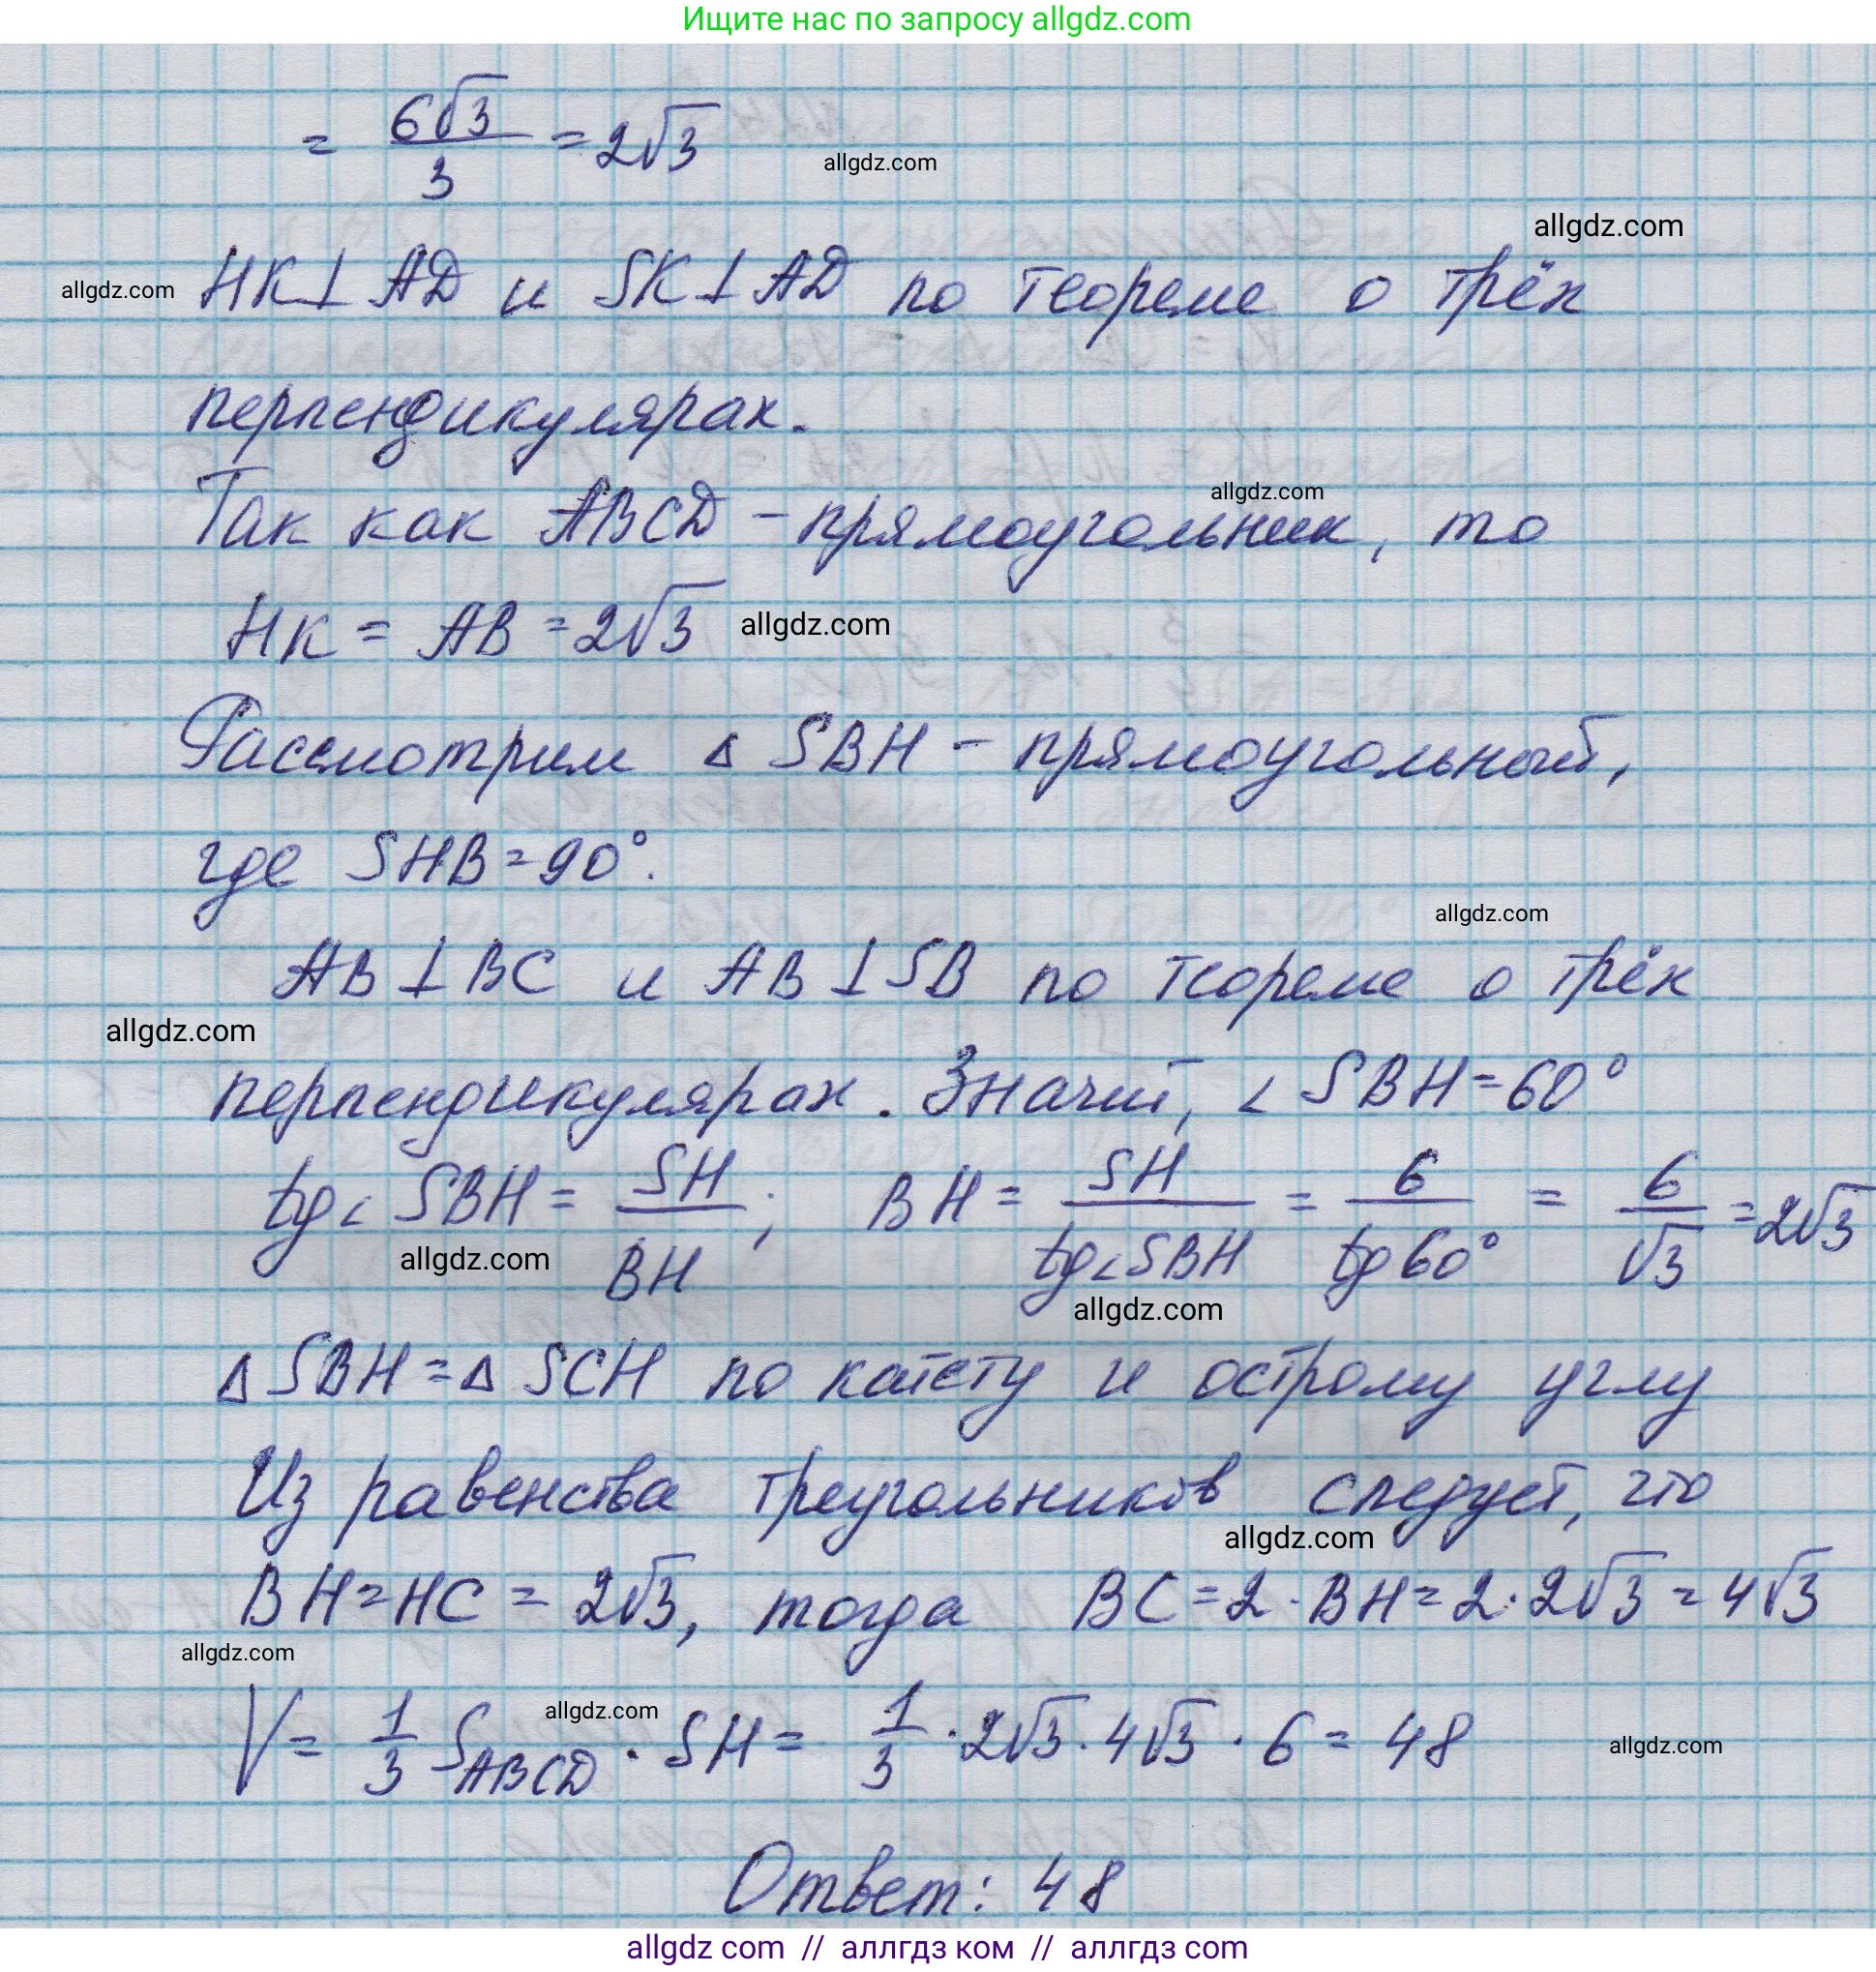 Ищите нас по запросу allgdz.com
= 6√3/3 = 2√3
allgdz.com
allgdz.com
allgdz.com
HK⊥AD и SK⊥AD по теореме о трёх
перпендикулярах.
allgdz.com
Так как ABCD – прямоугольник, то
HK = AB = 2√3
allgdz.com
Рассмотрим △ SBH – прямоугольный,
где SHB = 90°.
allgdz.com
AB⊥BC и AB⊥SB по теореме о трёх
allgdz.com
перпендикулярах. Значит, ∠ SBH = 60°
tg∠ SBH = SH/BH; BH = SH/tg∠SBH = 6/tg60° = 6/√3 = 2√3
allgdz.com
allgdz.com
△ SBH = △ SCH по катету и острому углу
Из равенства треугольников следует, что
allgdz.com
BH = HC = 2√3, тогда BC = 2 · BH = 2 · 2√3 = 4√3
allgdz.com
allgdz.com
V = 1/3 S_ABCD · SH = 1/3 · 2√3 · 4√3 · 6 = 48
allgdz.com
Ответ: 48
allgdz com // аллгдз ком // аллгдз com